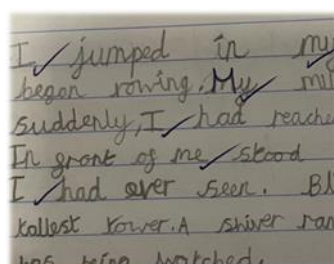 I jumped in my
began rowing. My mi
suddenly, I had reache
In front of me stood
I had ever seen. Bl
tallest tower. A shiver ran
was being watched.